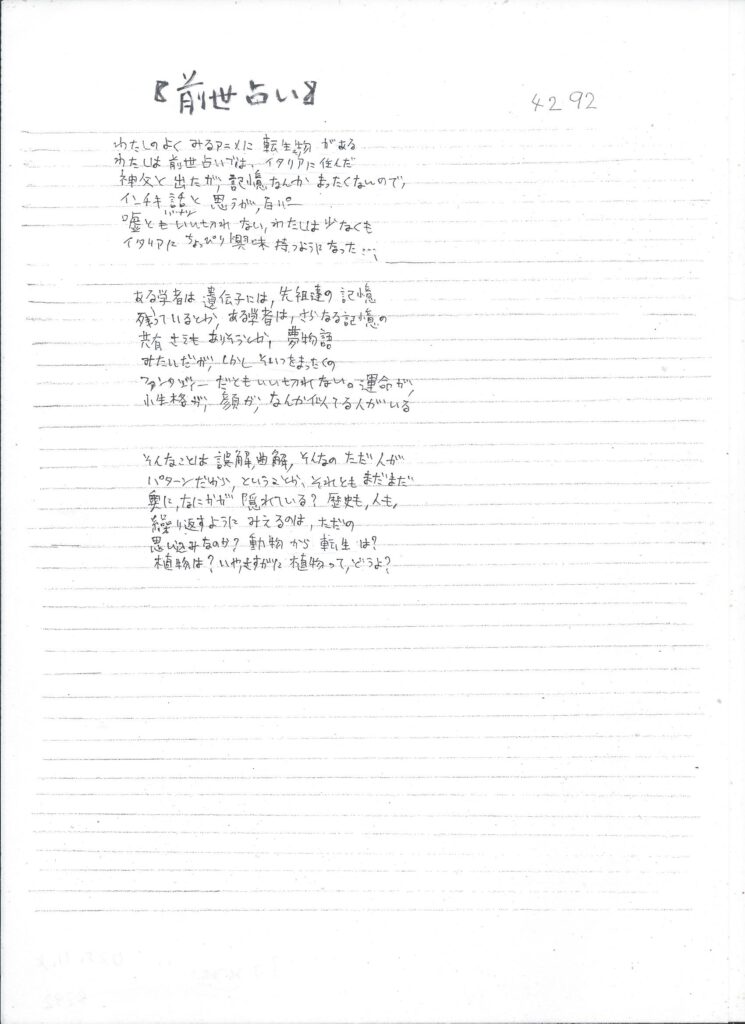 『前世占い』
4292
わたしのよくみるアニメに転生物がある
わたしは前世占いでは、イタリアに住んだ
神父と出たが、記憶なんかまったくないので、
インチキ話と思うが、
嘘ともいい切れない、わたしは少なくも
イタリアにちょっぴり興味持つようになった…、
ある学者は遺伝子には、先祖達の記憶
残っているとか、ある学者は、さらなる記憶の
共有さえもありそうとか、夢物語
みたいだが、しかしそいつをまったくの
ファンタジィーだともいい切れない。運命が、
性格が、顔が、なんか似てる人がいる
そんなことは誤解、曲解、そんなのただ人が
パターンだから、ということか、それともまだまだ
奥に、なにかが隠れている？歴史も、人も、
繰り返すようにみえるのは、ただの
思い込みなのか？動物から転生は？
植物は？いや、さすがに植物って、どうよ？